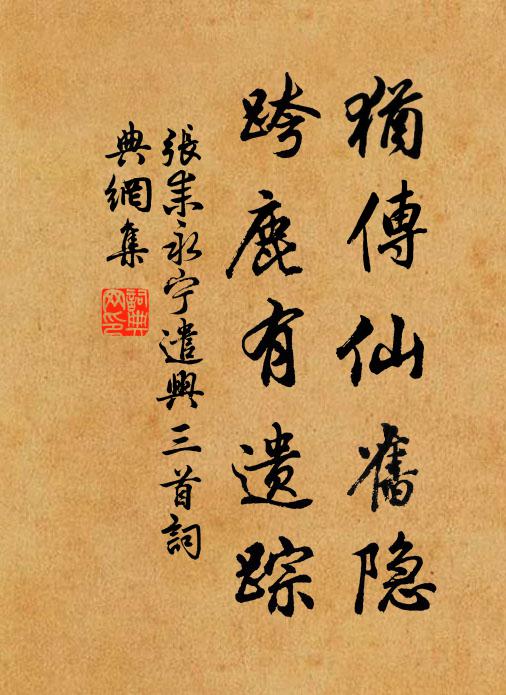 猶傳仙舊隐
跨鹿有遗踪
張耒永宁遣興三首詞
典網集
詞典
网印